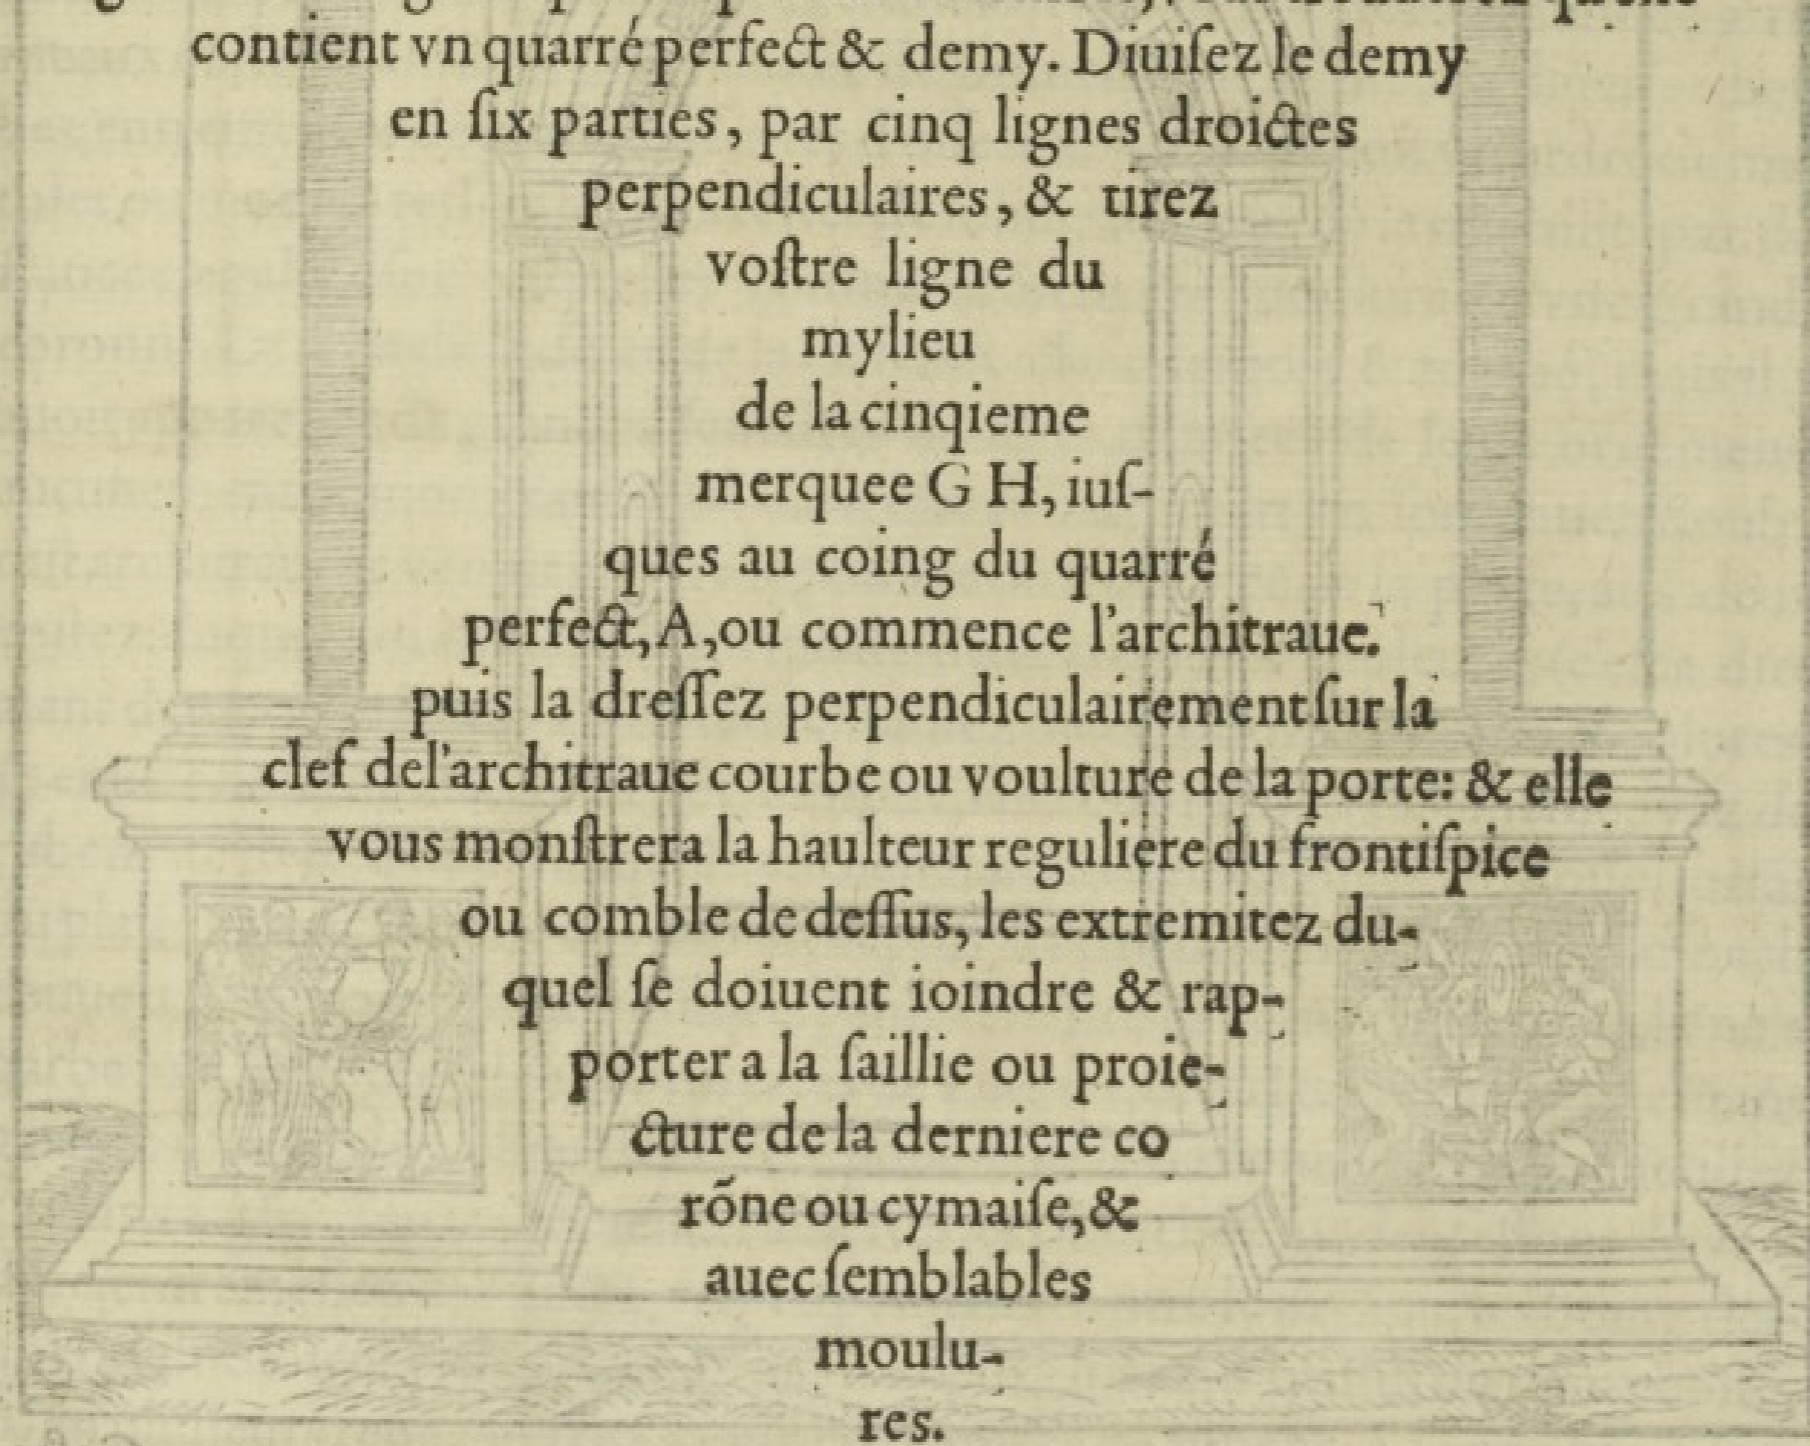 contient vn quarré perfect & demy. Diuiſez le demy
en ſix parties, par cinq lignes droictes
perpendiculaires, & tirez
voſtre ligne du
mylieu
de la cinqieme
merquee G H, iuſ-
ques au coing du quarré
perfect, A, ou commence l'architraue.
puis la dreſſez perpendiculairement ſur la
clef del'architraue courbe ou voulture de la porte: & elle
vous monſtrera la haulteur reguliere du frontiſpice
ou comble de deſſus, les extremitez du-
quel ſe doiuent ioindre & rap-
porter a la ſaillie ou proie-
cture de la derniere co
rõne ou cymaiſe, &
auec ſemblables
moulu-
res.